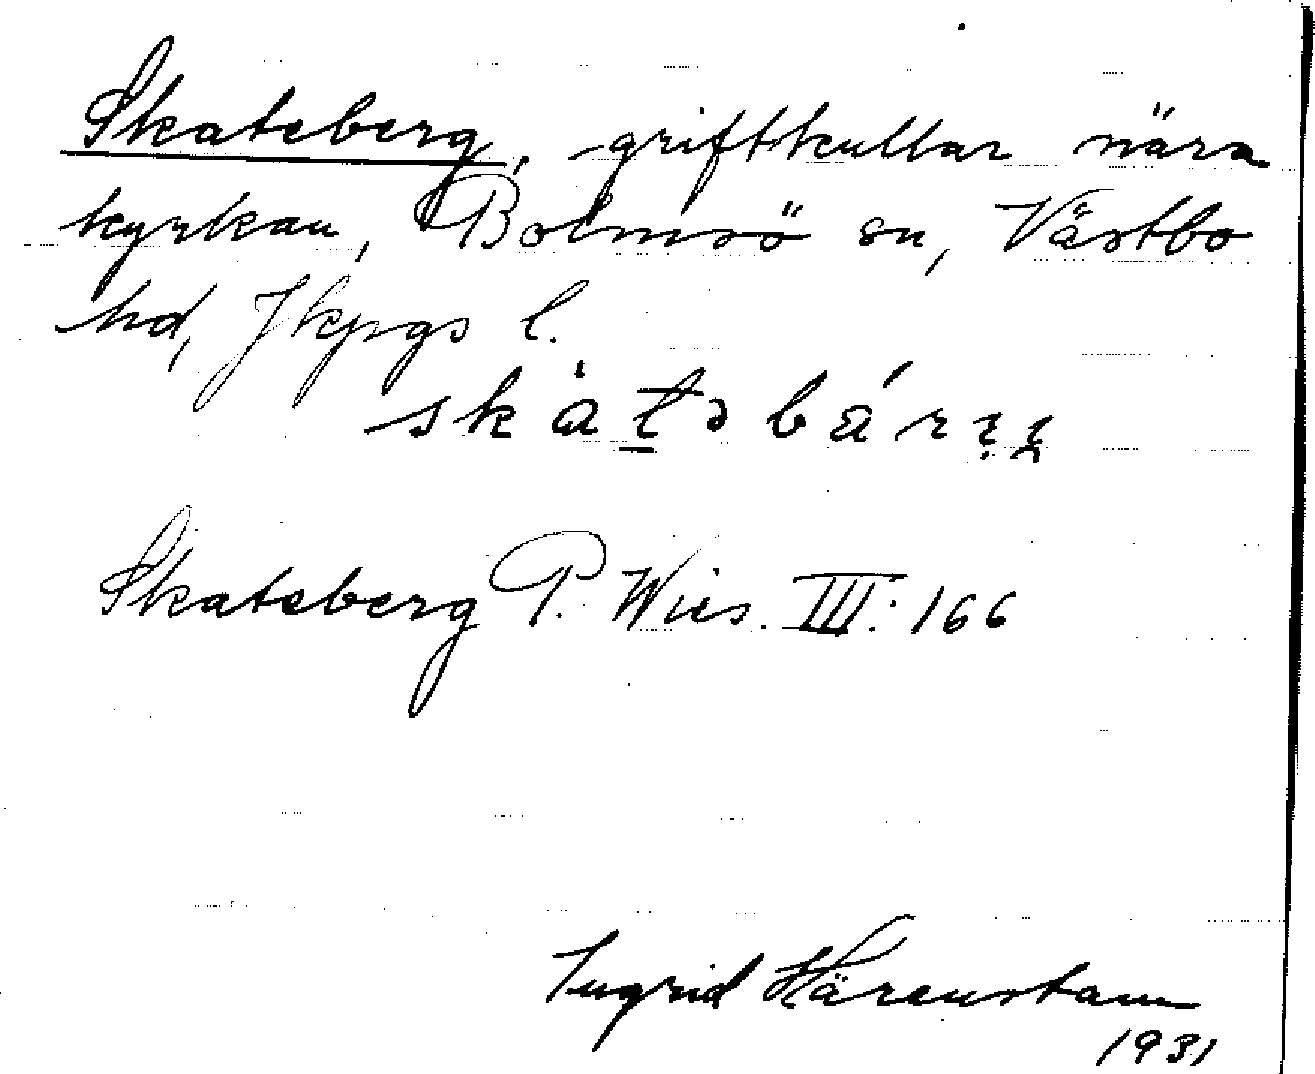 Skateberg, griftkullar nära
kyrkan, Bolmsö sn, Västbo
hd, Jkpgs l.
Skateberg P. Wies. III: 166
Ingrid Härenstam
1931